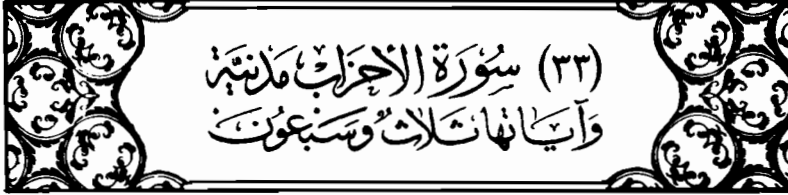 (٣٣) سُورَة الأحزَابْ مَدَنيَّة
وَآيَاتهَا ثَلَاثٌ وَسَبْعُونَ